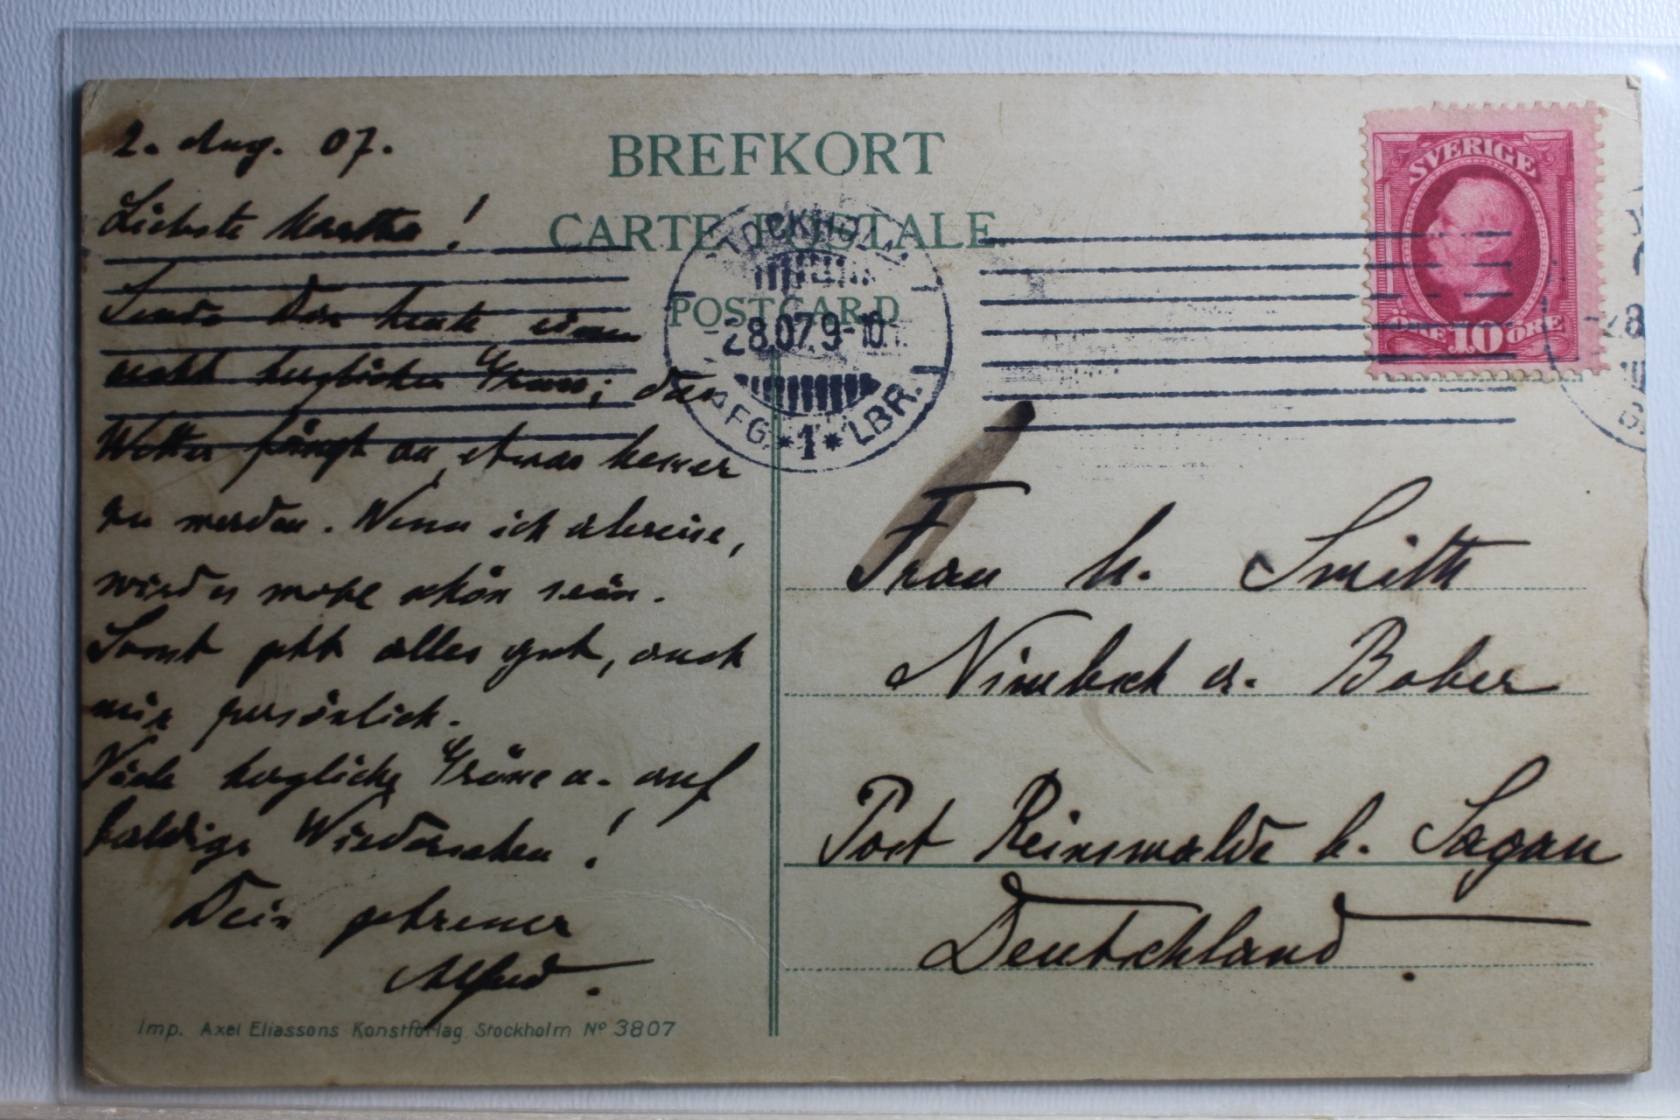 2. Aug. 07.
Liebste Martha!
Sende Dir heute einen
recht herzlichen Gruss; das
Wetter fängt an, etwas besser
zu werden. Wenn ich abreise,
wird es wohl schön sein.
Sonst geht alles gut, auch
mir persönlich.
Viele herzliche Grüsse u. auf
baldiges Wiedersehen!
Dein getreuer
Alfred.
Imp. Axel Eliassons Konstförlag Stockholm No 3807
BREFKORT
CARTE POSTALE
POSTCARD
STOCKHOLM
28.07.9-10
AFG. *1* LBR.
SVERIGE
ÖRE 10 ÖRE
Frau M. Smith
Nimbsch a. Bober
Post Reinswalde b. Sagan
Deutschland.